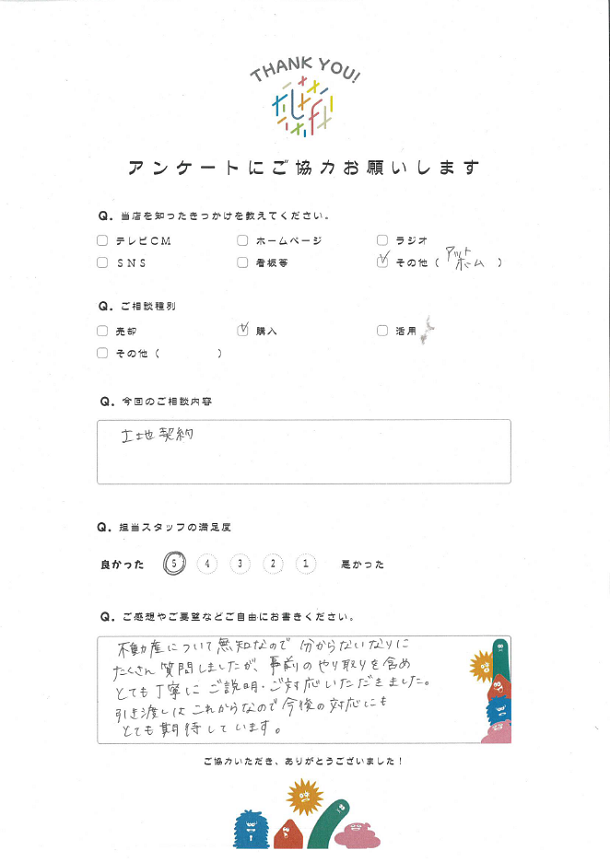 THANK YOU!
アンケートにご協力お願いします
Q. 当店を知ったきっかけを教えてください。
テレビCM ホームページ ラジオ
SNS 看板等 その他（アットホーム）
Q. ご相談種別
売却 購入 活用
その他（ ）
Q. 今回のご相談内容
土地契約
Q. 担当スタッフの満足度
良かった 5 4 3 2 1 悪かった
Q. ご感想やご要望などご自由にお書きください。
不動産について無知なので 分からないなりに
たくさん質問しましたが、事前のやり取りを含め
とても丁寧に ご説明・ご対応いただきました。
引き渡しは これからなので今後の対応にも
とても期待しています。
ご協力いただき、ありがとうございました！